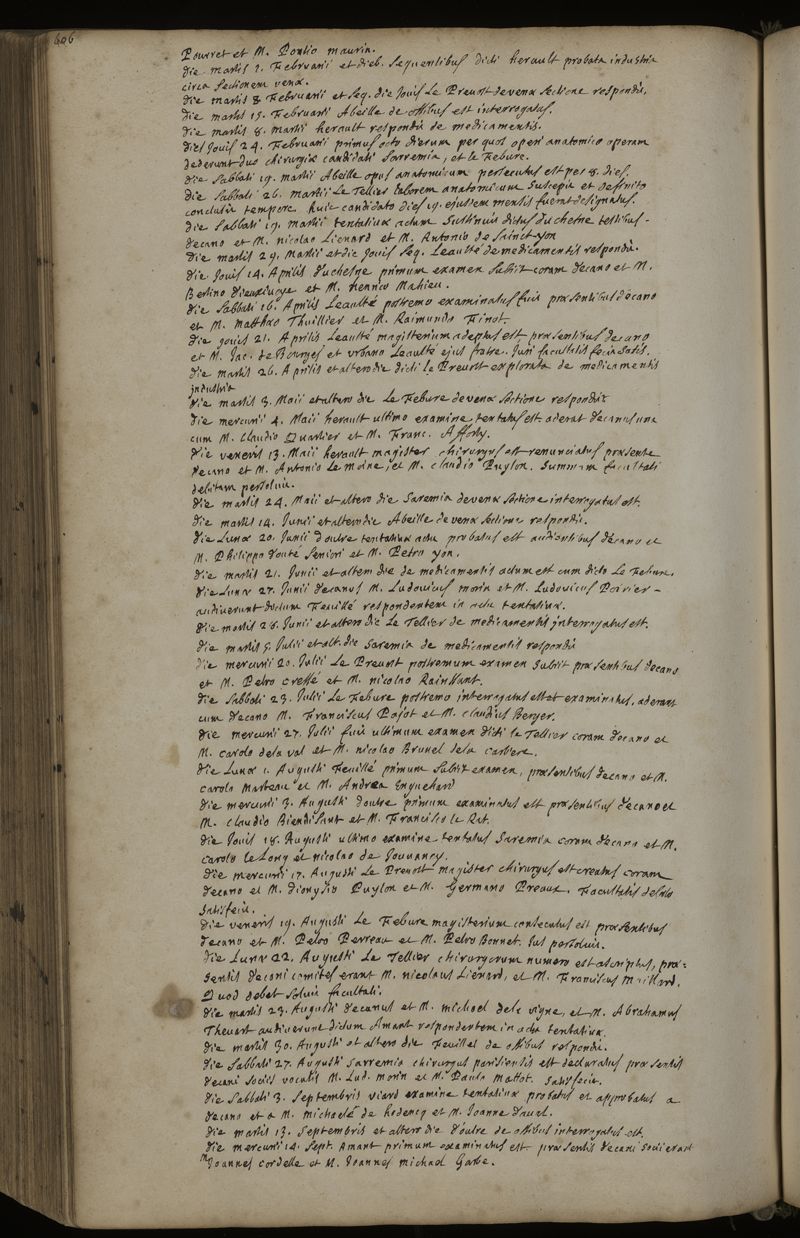 606
Pourret et M. Pontio maurin.
Die martis 1. Februarii et dieb. sequentibus dicti herault probata industria
circa sectionem venæ.
Die martis 8 Februarii et seq. die Jovis Le Prevost de venæ sectione respondit.
die martis 15. Februarii Abeille de ossibus est interrogatus.
die martis 8. martii herault respondit de medicamentis.
dies Jovis 24. Februarii primus octo dierum per quos operi anatomico operam
dederunt duo chirurgiæ candidati Sarremia, et le Febure.
die Sabbati 19. martii Abeille opus anatomicum persecutus est per 8. dies.
die Sabbati 26. martii Le Tellier laborem anatomicum suscepit et definito
conclusit tempore. huic candidato dies 19. ejusdem mensis fuerat designatus.
die Sabbati 19. martii tentativæ actum sustinuit dictus duchesne testibus
decano et M. nicolao Lienard et M. Antonio de Sainct-yon
die martis 29. Martii et die Jovis seq. Leaulté de medicamentis respondit.
die Jovis 14. Aprilis duchesne primum examen subiit coram decano et M.
Bertino Dieuxivoye et M. henrico Mahieu.
die Sabbati 16. Aprilis Leaulté postremo examinatus fuit præsentibus decano
et M. Matthæo Thuillier et M. Raimundo Finot.
die jovis 21. Aprilis Leaulté magisterium adeptus est præsentibus decano
et M. Jac. de Bourges et Urbano Leaulté ejus fratre. Juri facultatis fecit satis.
die martis 26. Aprilis et altero die dicti le Prevost explorata de medicamentis
industria
die martis 3. Maii et altero die Le Febure de venæ sectione respondit
die mercurii 4. Maii herault ultimo examine tentatus est. aderat decanus una
cum M. Claudio Quartier et M. Franc. Afforty.
die veneris 13. Maii herault magister chirurgus est renunciatus præsente
decano et M. Antonio Le moine, et M. claudio Puylon. Summam facultati
debitam persolvit.
die martis 24. Maii et altero die Saremia de venæ sectione interrogatus est.
die martis 14. Junii et altero die Abeille de venæ sectione respondit.
die Lunæ 20. Junii doutre tentativæ actu probatus est audientibus decano et
M. Philippo douté seniori et M. Petro yon.
die martis 21. Junii et altero die de medicamentis actum est cum dicto Le Febure.
die Lunæ 27. Junii decanus M. Ludovicus morin et M. Ludovicus Poirier
audiverunt dictum Feuillé respondentem in actu tentativæ.
die martis 28. Junii et altero die Le Tellier de medicamentis interrogatus est.
die martis 5. Julii et alt. die Saremia de medicamentis respondit
die mercurii 20. Julii Le Prevost postremum examen subiit præsentibus decano
et M. Petro cressé et M. nicolao Rainssant.
die Sabbati 23. Julii Le Febure postremo interrogatus est et examinatus, aderant
cum decano M. Franciscus Pajot et M. claudius Berger.
die mercurii 27. Julii fuit ultimum examen dicti le Tellier coram decano et
M. carolo de la val et M. nicolao Brunel de la carliere.
die Lunæ 1. Augusti Feuillé primum subiit examen, præsentibus decano et M.
carolo Marteau et M. Andrea Enguehard
die mercurii 3. Augusti doutre primum examinatus est præsentibus decano et
M. claudio Biendisant et M. Francisco le Rat.
die Jovis 18. Augusti ultimo examine tentatus Saremia coram decano et M.
carolo le Long et nicolao de Jouvancy.
die mercurii 17. Augusti Le Prevost magister chirurgus est creatus coram
decano et M. dionysio Puylon et M. Germano Preaux. Facultatis debito
satisfecit.
die veneris 19. Augusti Le Febure magisterium consecutus est præsentibus
decano et M. Petro Perreau et M. Petro Bonnet. Jus persolvit.
die Lunæ 22. Augusti Le Tellier chirurgorum numero est ascriptus, præ=
sentis decani comites erant M. nicolaus Lienard, et M. Franciscus Maillard.
Quod debet solvit facultati.
die martis 23. Augusti decanus et M. michael de la vigne, et M. Abrahamus
Thevart audiverunt dictum Amant respondentem in actu tentativæ.
die martis 30. Augusti et altero die Feuillet de ossibus respondit.
die Sabbati 27. Augusti Sarremia chirurgus parisiensis est declaratus præsentis
decani sociis vocatis M. Lud. morin et M. Paulo Mattot. Satisfecit.
die Sabbati 3. Septembris viard examine tentativæ probatus et approbatus a
decano et a M. michaele de hodencq et M. Joanne Daval.
die martis 13. Septembris et altero die doutre de ossibus interrogatus est.
die mercurii 14. Sept. Amant primum examinatus est. præsentis decani socii erant
M Joannes cordelle et M. Joannes michael Garbe.